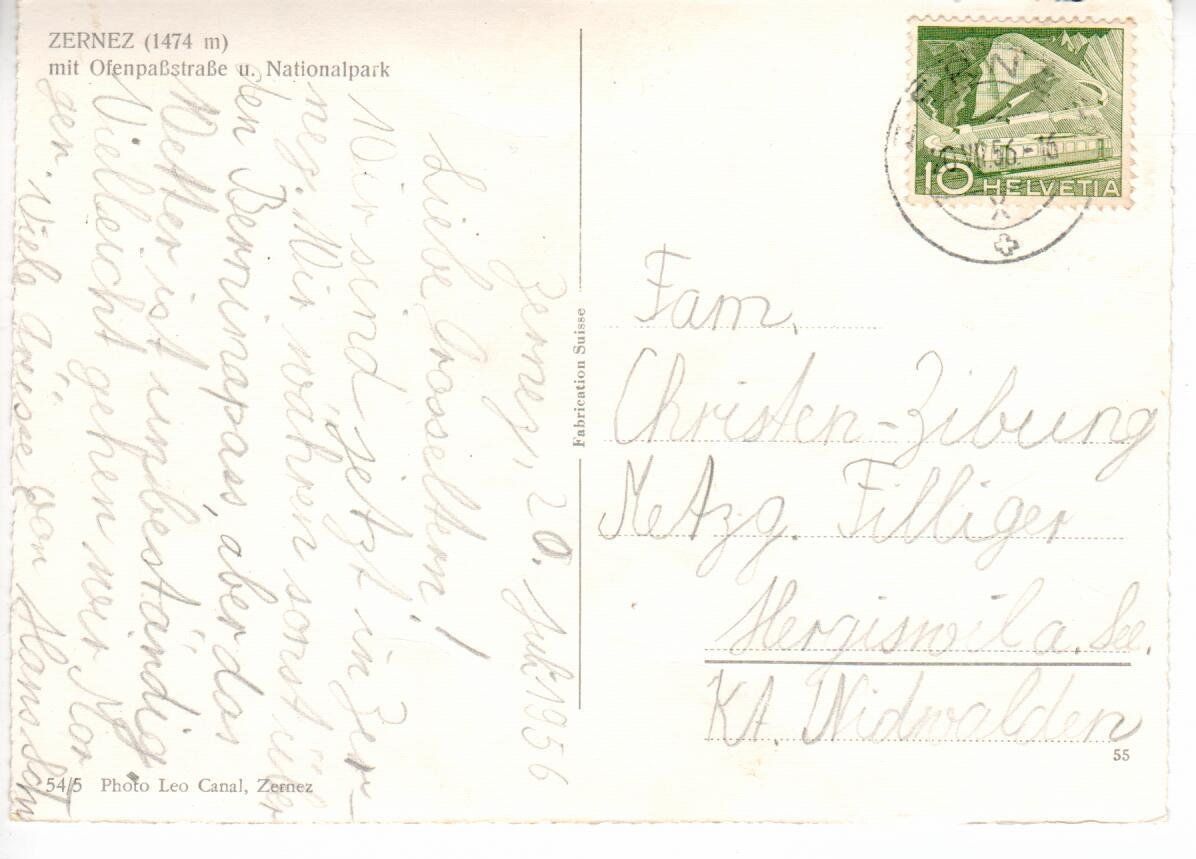 ZERNEZ (1474 m)
mit Ofenpaßstraße u. Nationalpark
Zernez, 20. Juli 1956
Liebe Grosseltern!
Wir sind jetzt in Zer-
nez. Wir währen sonst über
den Berninapass, aber das
Wetter ist unbeständig.
Vielleicht gehen wir Mor
gen. Viele Grüsse von Hans
54/5 Photo Leo Canal, Zernez
Fabrication Suisse
10 HELVETIA
56.-16
Fam.
Christen-Zibung
Metzg. Filliger
Hergiswil a. See.
Kt. Nidwalden
55